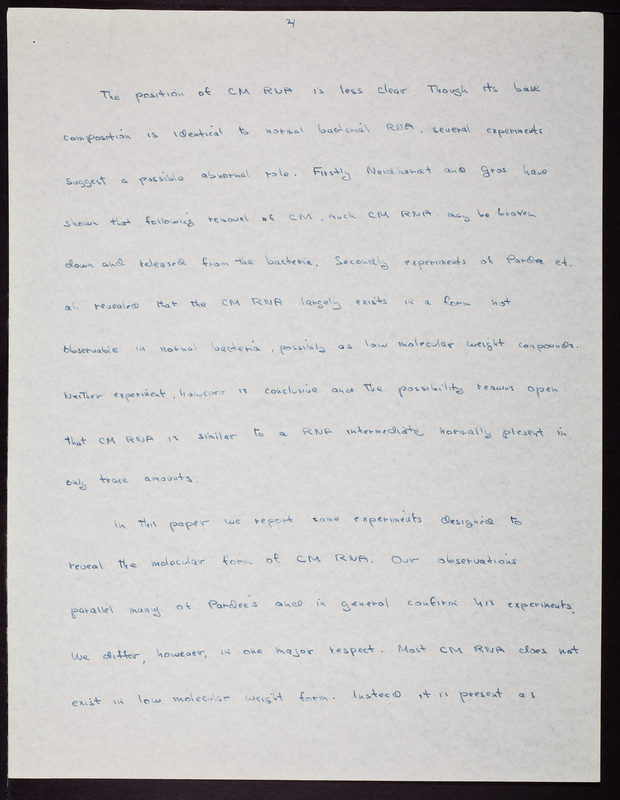 2/
The position of CM RNA is less clear. Though its base
composition is identical to normal bacterial RNA, several experiments
suggest a possible abnormal role. Firstly Neidhardt and Gros have
shown that following removal of CM, much CM RNA may be broken
down and released from the bacteria. Secondly experiments of Pardee et.
al. revealed that the CM RNA largely exists in a form not
observable in normal bacteria, possibly as low molecular weight compounds.
Neither experiment, however is conclusive and the possibility remains open
that CM RNA is similar to a RNA intermediate normally present in
only trace amounts.
In this paper we report some experiments designed to
reveal the molecular form of CM RNA. Our observations
parallel many of Pardee's and in general confirm his experiments.
We differ, however, in one major respect. Most CM RNA does not
exist in low molecular weight form. Instead it is present as